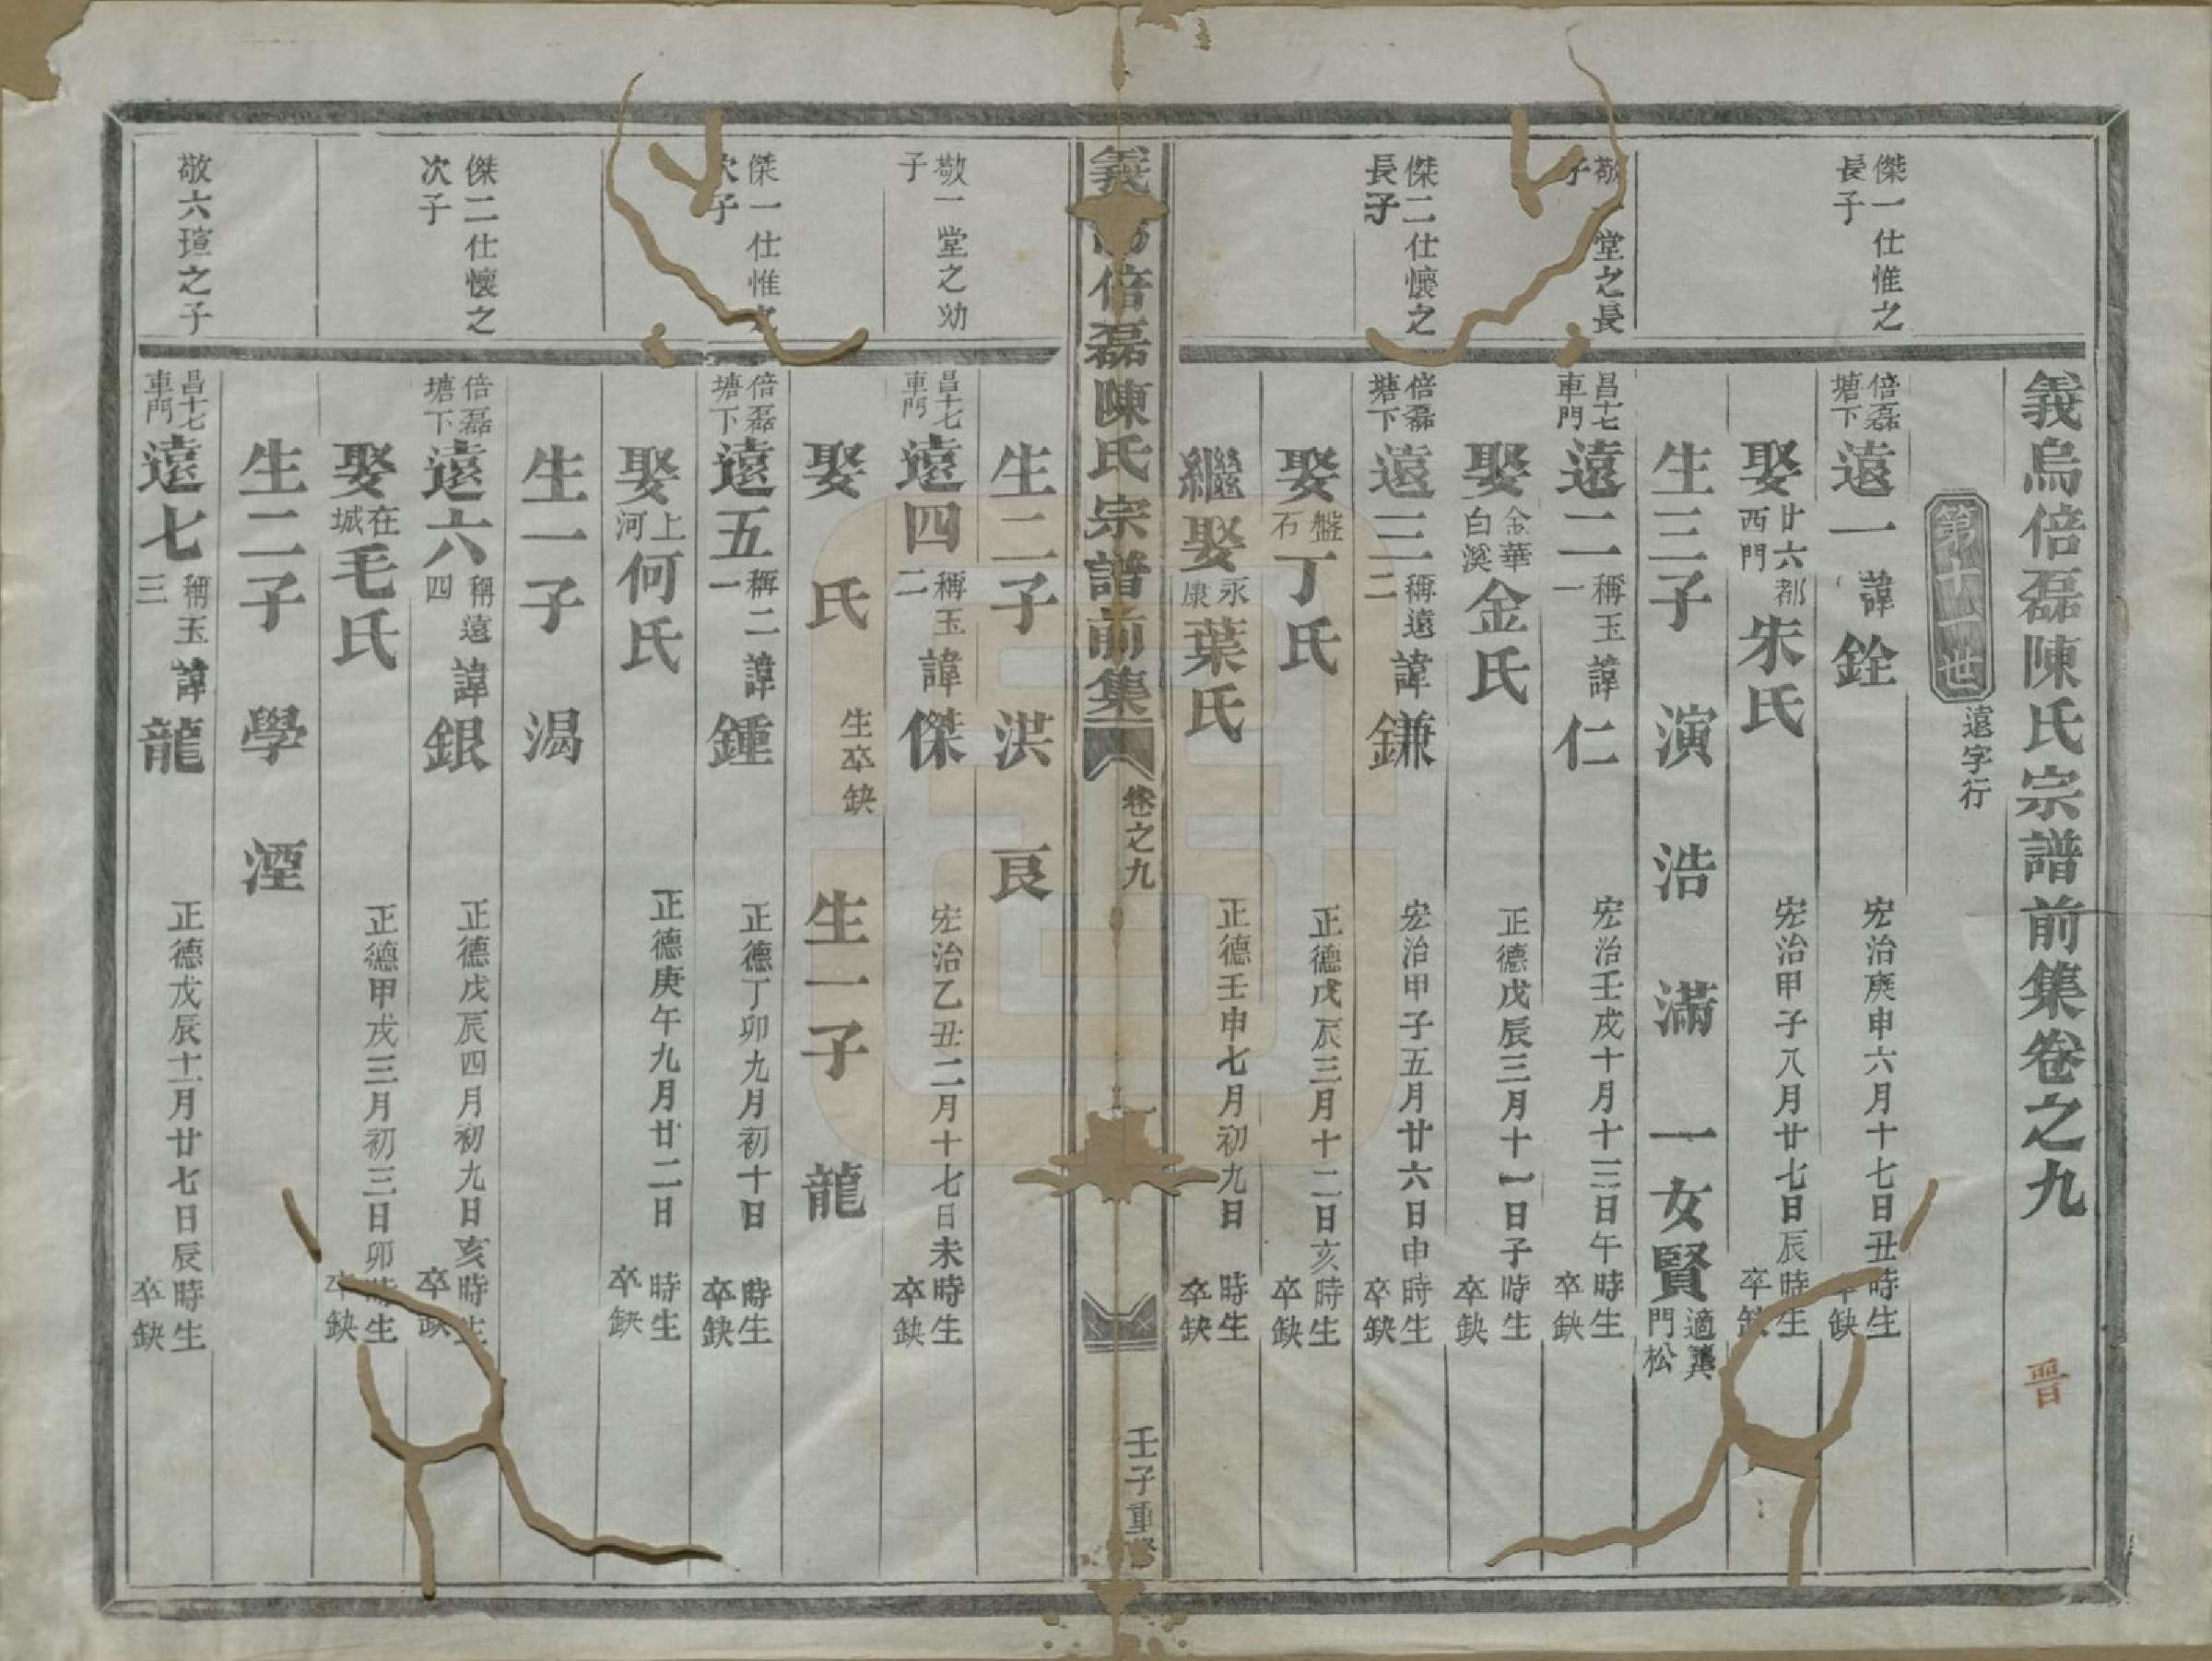 義烏倍磊陳氏宗譜前集卷之九
晋
第十一世 遠字行
傑一仕惟之長子
倍磊塘下 遠一 諱銓 宏治庚申六月十七日丑時生 卒缺
娶廿六都西門朱氏 宏治甲子八月廿七日辰時生 卒缺
生三子 演 浩 滿 一女賢 適龔門松
敬一堂之長子
昌十七車門 遠二 稱玉一 諱仁 宏治壬戌十月十三日午時生 卒缺
娶金華白溪金氏 正德戊辰三月十一日子時生 卒缺
傑二仕懷之長子
倍磊塘下 遠三 稱遠二 諱鎌 宏治甲子五月廿六日申時生 卒缺
娶盤石丁氏 正德戊辰三月十二日亥時生 卒缺
繼娶永康葉氏 正德壬申七月初九日 時生 卒缺
義 倍磊陳氏宗譜前集 卷之九 一 壬子重修
生二子 洪 㫰
敬一堂之幼子
昌十七車門 遠四 稱玉二 諱傑 宏治乙丑二月十七日未時生 卒缺
娶 氏 生卒缺 生一子 龍
傑一仕惟之次子
倍磊塘下 遠五 稱二一 諱鍾 正德丁卯九月初十日 時生 卒缺
娶上河何氏 正德庚午九月廿二日 時生 卒缺
生一子 渴
傑二仕懷之次子
倍磊塘下 遠六 稱遠四 諱銀 正德戊辰四月初九日亥時生 卒缺
娶在城毛氏 正德甲戌三月初三日卯時生 卒缺
生二子 學 湮
敬六瑄之子
昌十七車門 遠七 稱玉三 諱龍 正德戊辰十一月廿七日辰時生 卒缺